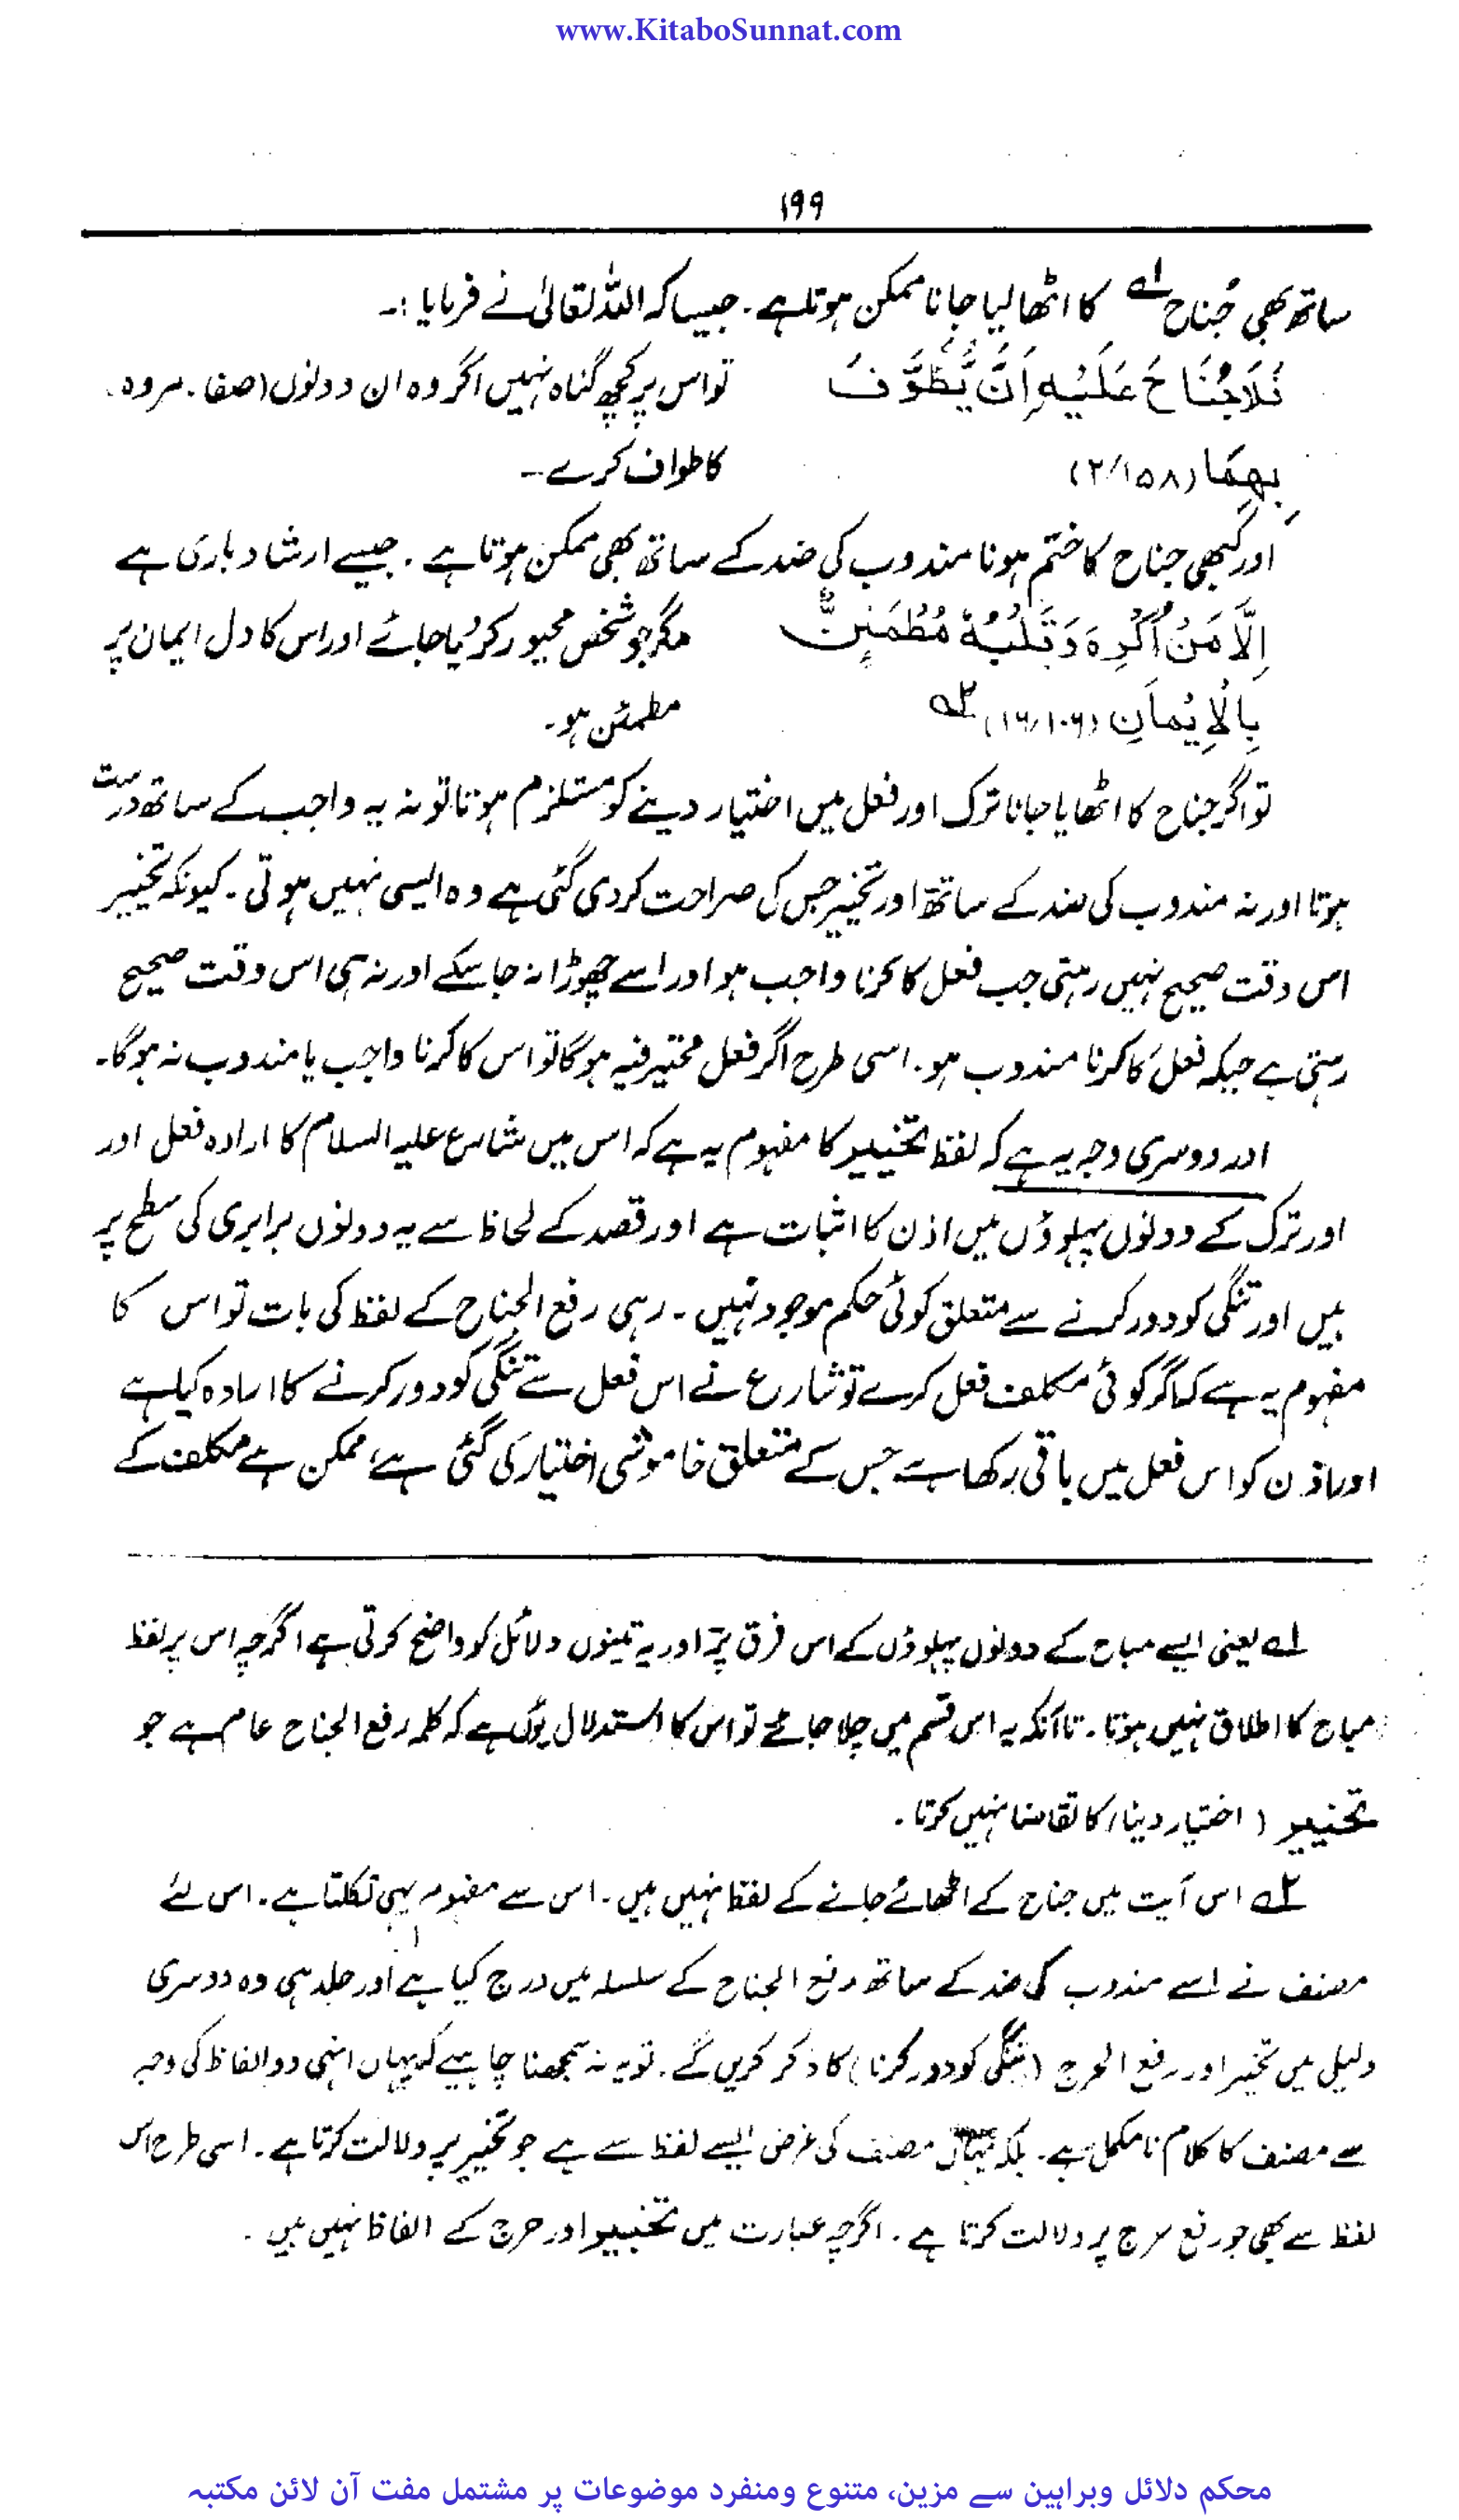 www.KitaboSunnat.com
۱۹۹
ساتھ بھی جُناح ؎۱ کا اٹھا لیا جانا ممکن ہوتا ہے۔ جیسا کہ اللہ تعالیٰ نے فرمایا :۔
فَلَا جُنَاحَ عَلَيْهِ اَنْ يَّطَّوَّفَ تو اس پر کچھ گناہ نہیں اگر وہ ان دونوں (صفا۔ مروہ۔
بِهِمَا (۲/۱۵۸) کا طواف کرے۔
اور کبھی جناح کا ختم ہونا مندوب کی ضد کے ساتھ بھی ممکن ہوتا ہے۔ جیسے ارشاد باری ہے
اِلَّا مَنْ اُكْرِهَ وَقَلْبُهٗ مُطْمَئِنٌّ مگر جو شخص مجبور کر دیا جائے اور اس کا دل ایمان پر
بِالْاِيْمَانِ (۱۶/۱۰۶) ؎۲ مطمئن ہو۔
تو اگر جناح کا اٹھایا جانا ترک اور فعل میں اختیار دینے کو مستلزم ہوتا تو نہ یہ واجب کے ساتھ درست
ہوتا اور نہ مندوب کی ضد کے ساتھ اور تخییر جس کی صراحت کر دی گئی ہے وہ ایسی نہیں ہوتی۔ کیونکہ تخییر
اس وقت صحیح نہیں رہتی جب فعل کا کرنا واجب ہو اور اسے چھوڑا نہ جا سکے اور نہ ہی اس وقت صحیح
رہتی ہے جبکہ فعل کا کرنا مندوب ہو۔ اسی طرح اگر فعل مختیر فیہ ہوگا تو اس کا کرنا واجب یا مندوب نہ ہوگا۔
اور دوسری وجہ یہ ہے کہ لفظ تخییر کا مفہوم یہ ہے کہ اس میں شارع علیہ السلام کا ارادہ فعل اور
اور ترک کے دونوں پہلوؤں میں اذن کا اثبات ہے اور قصد کے لحاظ سے یہ دونوں برابری کی سطح پر
ہیں اور تنگی کو دور کرنے سے متعلق کوئی حکم موجود نہیں۔ رہی رفع الجناح کے لفظ کی بات تو اس کا
مفہوم یہ ہے کہ اگر کوئی مکلف فعل کرے تو شارع نے اس فعل سے تنگی کو دور کرنے کا ارادہ کیا ہے
اور اذن کو اس فعل میں باقی رکھا ہے جس کے متعلق خاموشی اختیار کی گئی ہے، ممکن ہے مکلف کے
؎۱ یعنی ایسے مباح کے دونوں پہلوؤں کے اس فرق پر، اور یہ تینوں دلائل کو واضح کرتی ہے اگرچہ اس پر لفظ
مباح کا اطلاق نہیں ہوتا۔ تا آنکہ یہ اس قسم میں چلا جائے تو اس کا استدلال یوں ہے کہ کلمہ رفع الجناح عام ہے جو
تخییر (اختیار دینا) کا تقاضا نہیں کرتا۔
؎۲ اس آیت میں جناح کے اٹھائے جانے کے لفظ نہیں ہیں۔ اس سے مفہوم یہی نکلتا ہے۔ اس لئے
مصنف نے اسے مندوب کی ضد کے ساتھ رفع الجناح کے سلسلہ میں درج کیا ہے اور جلد ہی وہ دوسری
دلیل میں تخییر اور رفع الحرج (تنگی کو دور کرنا) کا ذکر کریں گے۔ تو یہ نہ سمجھنا چاہیے کہ یہاں انہی دو الفاظ کی وجہ
سے مصنف کا کلام نامکمل ہے۔ بلکہ یہاں مصنف کی غرض ایسے لفظ سے ہے جو تخییر پر دلالت کرتا ہے۔ اسی طرح اس
لفظ سے بھی جو رفع حرج پر دلالت کرتا ہے۔ اگرچہ عبارت میں تخییر اور حرج کے الفاظ نہیں ہیں۔
محکم دلائل وبراہین سے مزین، متنوع ومنفرد موضوعات پر مشتمل مفت آن لائن مکتبہ